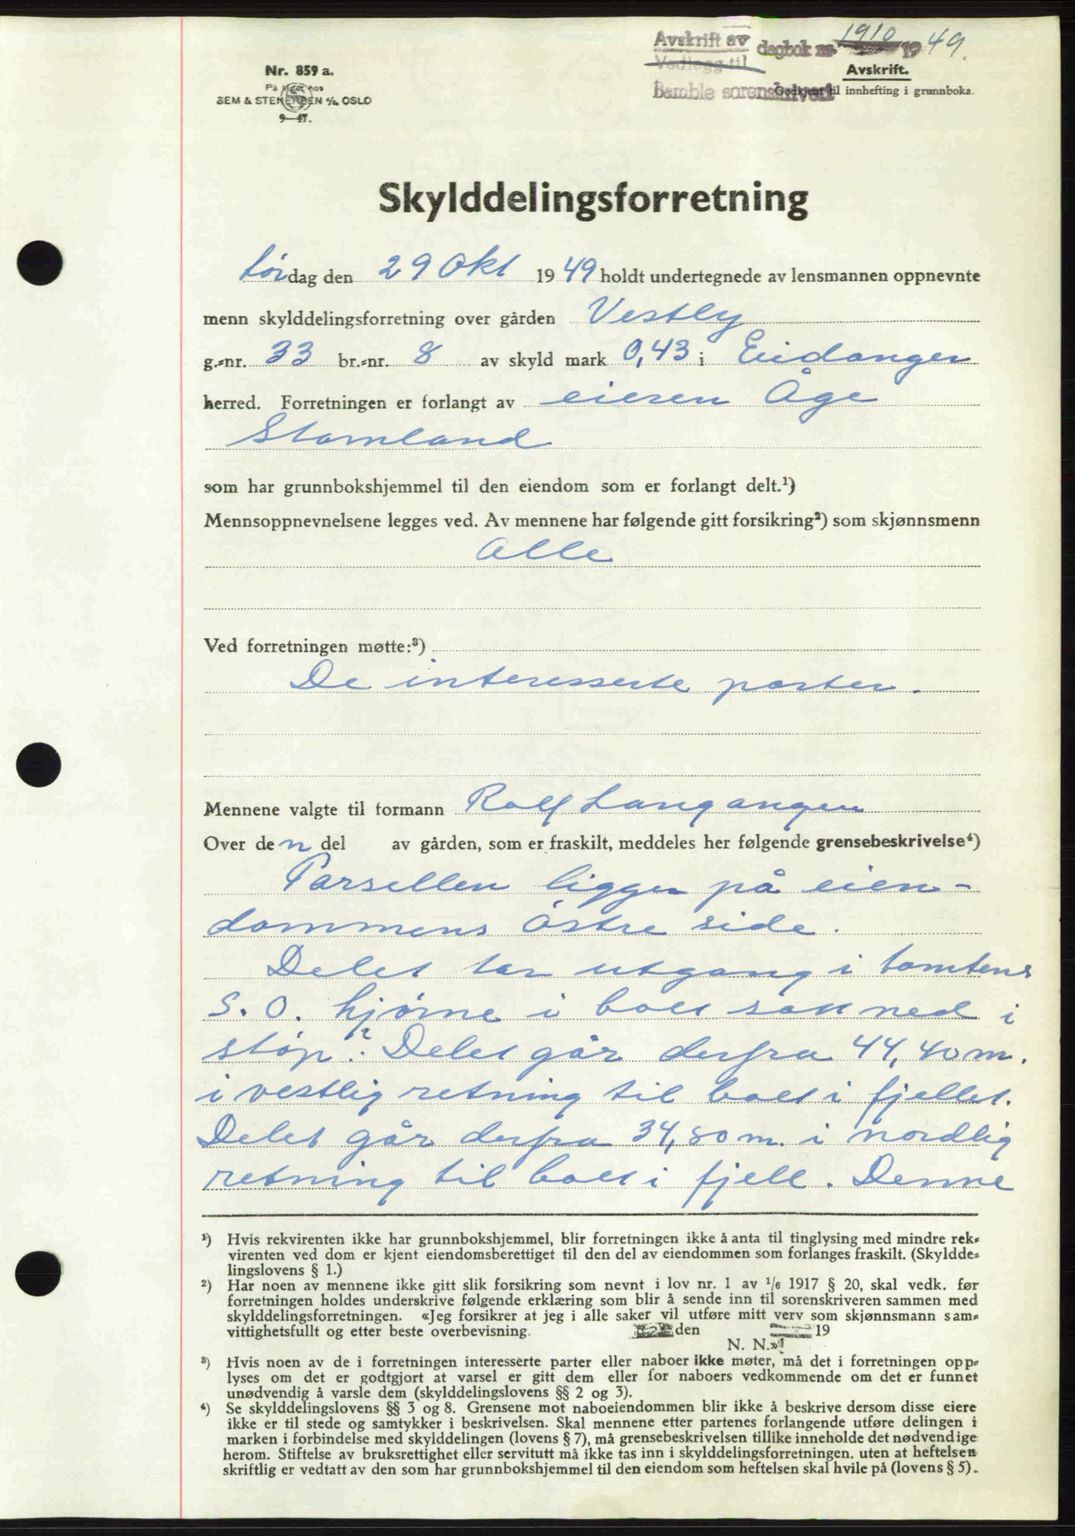 Avskrift av dagbok nr. 1910 1949.
Vedlegg til
Bamble sorenskriveri
Avskrift.
Godkjent til innhefting i grunnboka.
Nr. 859 a.
På lager hos
SEM & STENERSEN A/S, OSLO
9—47.
Skylddelingsforretning
Lørdag den 29 Okt 1949 holdt undertegnede av lensmannen oppnevnte
menn skylddelingsforretning over gården Vestly
g.-nr. 33 br.-nr. 8 av skyld mark 0,43 i Eidanger
herred. Forretningen er forlangt av eieren Åge
Stamland
som har grunnbokshjemmel til den eiendom som er forlangt delt.¹)
Mennsoppnevnelsene legges ved. Av mennene har følgende gitt forsikring²) som skjønnsmenn
Alle
Ved forretningen møtte:³)
De interesserte parter.
Mennene valgte til formann Rolf Langangen
Over den del av gården, som er fraskilt, meddeles her følgende grensebeskrivelse⁴)
Parsellen ligger på eien-
dommens østre side.
Delet tar utgang i tomtens
S.O. hjørne i bolt satt ned i
støp. Delet går derfra 44,40 m.
i vestlig retning til bolt i fjellet.
Delet går derfra 34,80 m. i nordlig
retning til bolt i fjell. Denne
¹) Hvis rekvirenten ikke har grunnbokshjemmel, blir forretningen ikke å anta til tinglysing med mindre rek-
virenten ved dom er kjent eiendomsberettiget til den del av eiendommen som forlanges fraskilt. (Skyldde-
lingslovens § 1.)
²) Har noen av mennene ikke gitt slik forsikring som nevnt i lov nr. 1 av 1/6 1917 § 20, skal vedk. før
forretningen holdes underskrive følgende erklæring som blir å sende inn til sorenskriveren sammen med
skylddelingsforretningen. «Jeg forsikrer at jeg i alle saker vil utføre mitt verv som skjønnsmann sam-
vittighetsfullt og etter beste overbevisning. den 19
N. N.»
³) Hvis noen av de i forretningen interesserte parter eller naboer ikke møter, må det i forretningen opp-
lyses om det er godtgjort at varsel er gitt dem eller for naboers vedkommende om det er funnet
unødvendig å varsle dem (skylddelingslovens §§ 2 og 3).
⁴) Se skylddelingslovens §§ 3 og 8. Grensene mot naboeiendommen blir ikke å beskrive dersom disse eiere
ikke er til stede og samtykker i beskrivelsen. Skal mennene etter partenes forlangende utføre delingen i
marken i forbindelse med skylddelingen (lovens § 7), må grensebeskrivelsen tillike inneholde det nødvendige
herom. Stiftelse av bruksrettighet eller servitutt må ikke tas inn i skylddelingsforretningen, uten at heftelsen
skriftlig er vedtatt av den som har grunnbokshjemmel til den eiendom som heftelsen skal hvile på (lovens § 5).